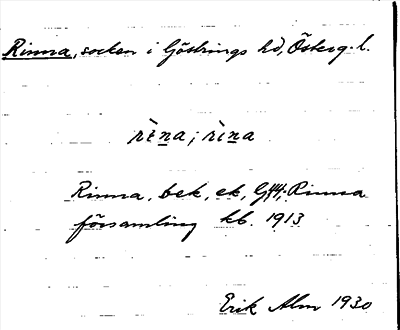 Rinna, socken i Göstrings hd, Österg. l.
rı̀na; rı̀na
Rinna, bek, ek, Rinna
församling kb. 1913
Erik Alm 1930